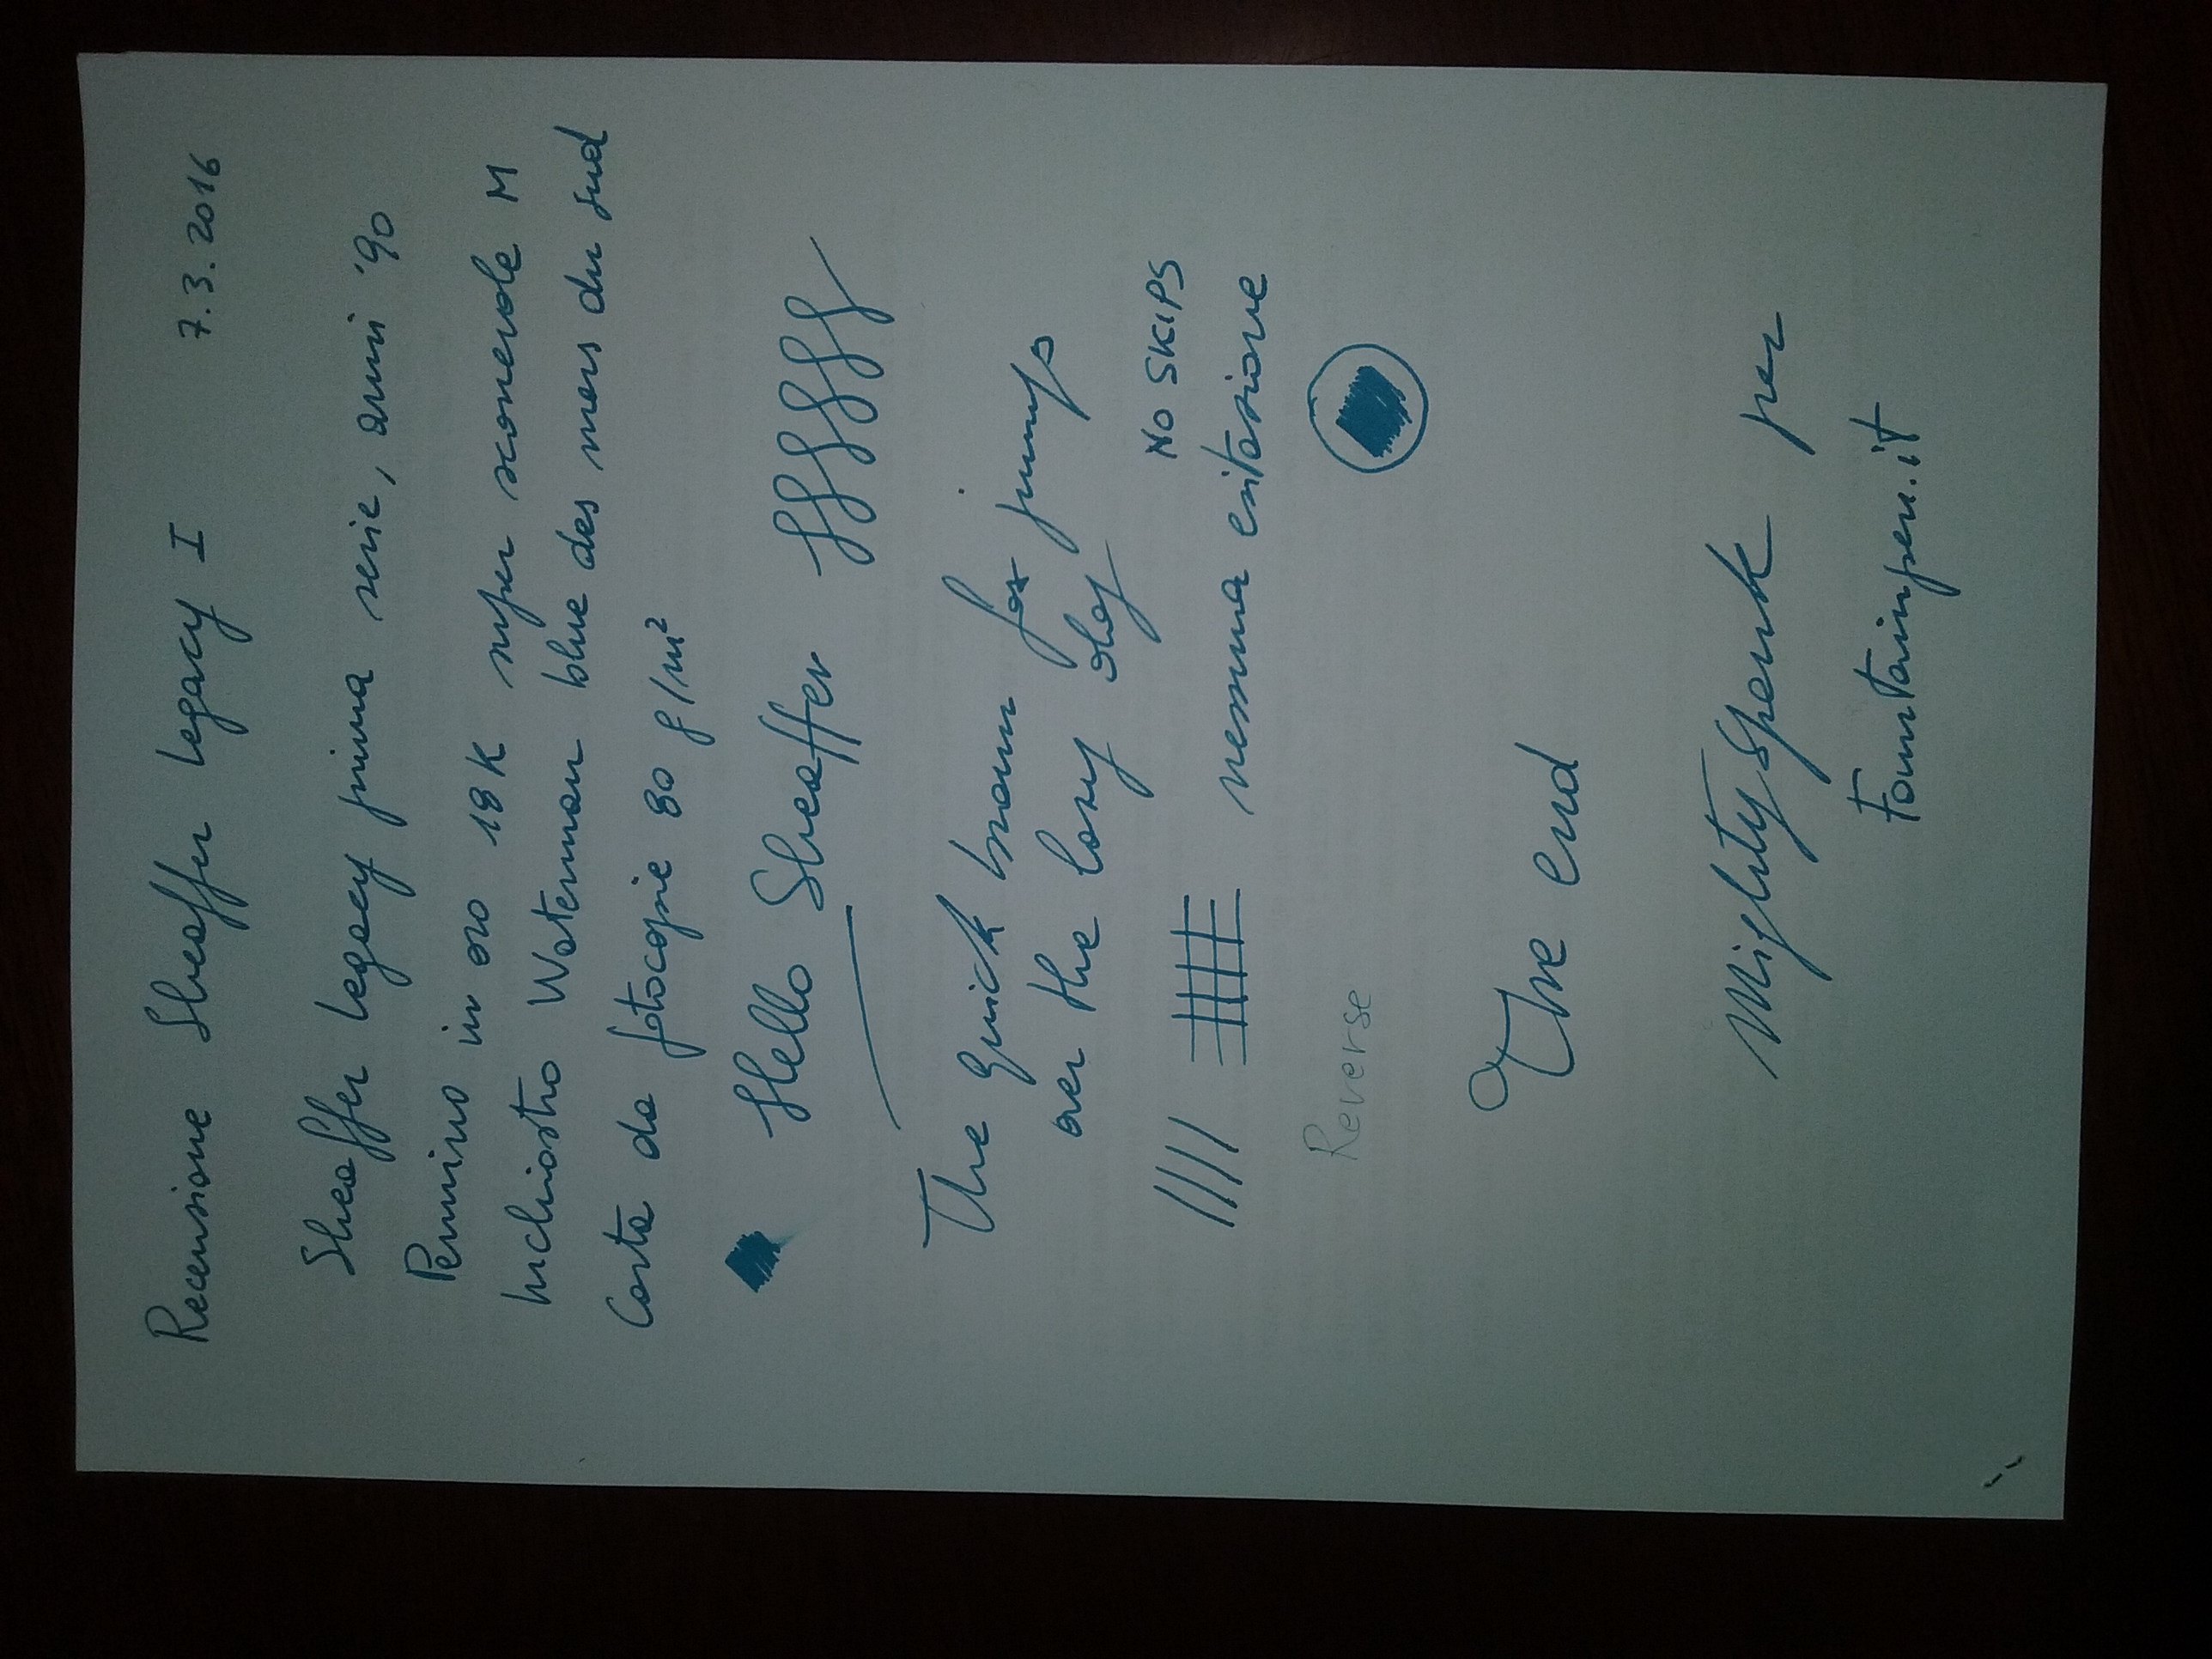 Recensione Sheaffer Legacy I 7.3.2016
Sheaffer Legacy prima serie, anni '90
Pennino in oro 18K super scorrevole M
Inchiostro Waterman blue des mers du sud
Carta da fotocopie 80 g/m²
Hello Sheaffer
The quick brown fox jumps
over the lazy dog
NO SKIPS
nessuna esitazione
Reverse
The end
MightySpank per
Fountainpen.it